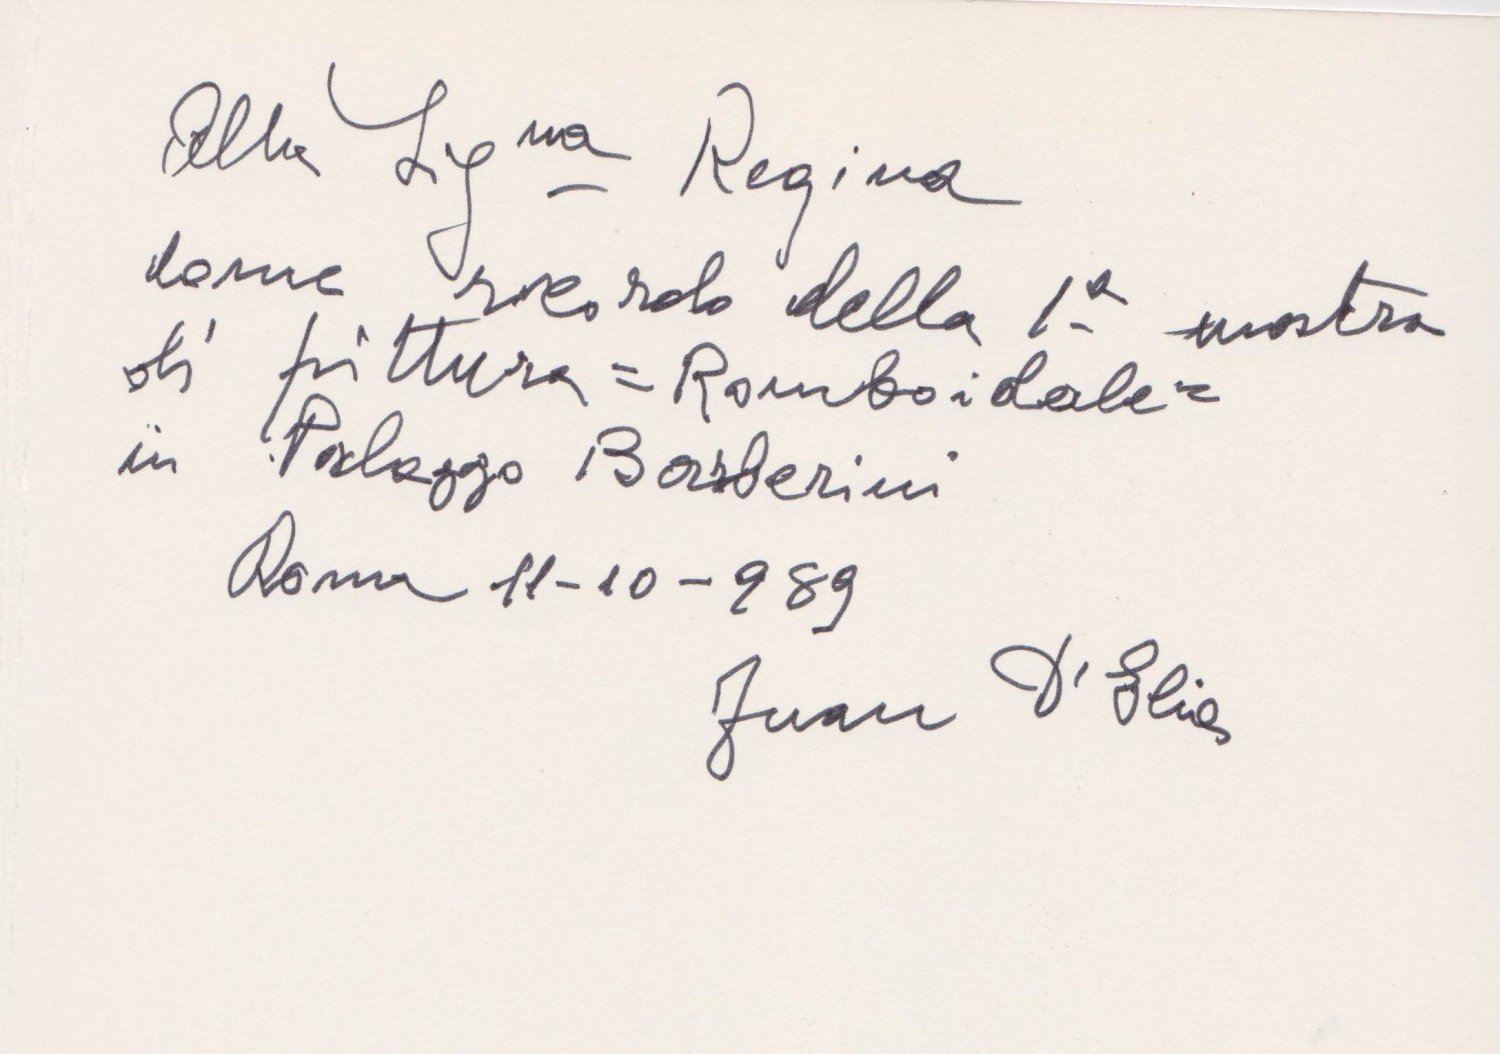 Alla Sigᶰᵃ Regina
come ricordo della 1ª mostra
di pittura = Romboidale =
in Palazzo Barberini
Roma 11-10-989
Juan D'Elias